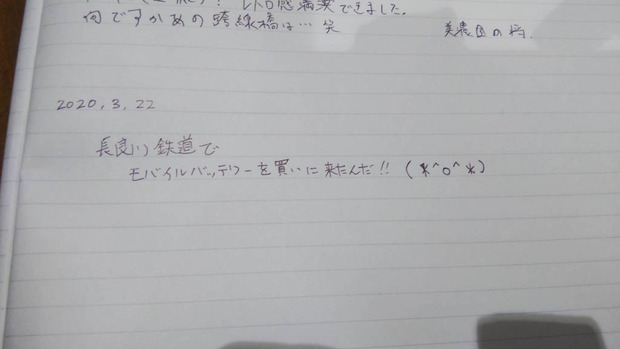 レトロ感満喫できました。
何ですかあの跨線橋は… 笑
美農国の
2020, 3, 22
長良川鉄道で
モバイルバッテリーを買いに来たんだ!! (*^o^*)